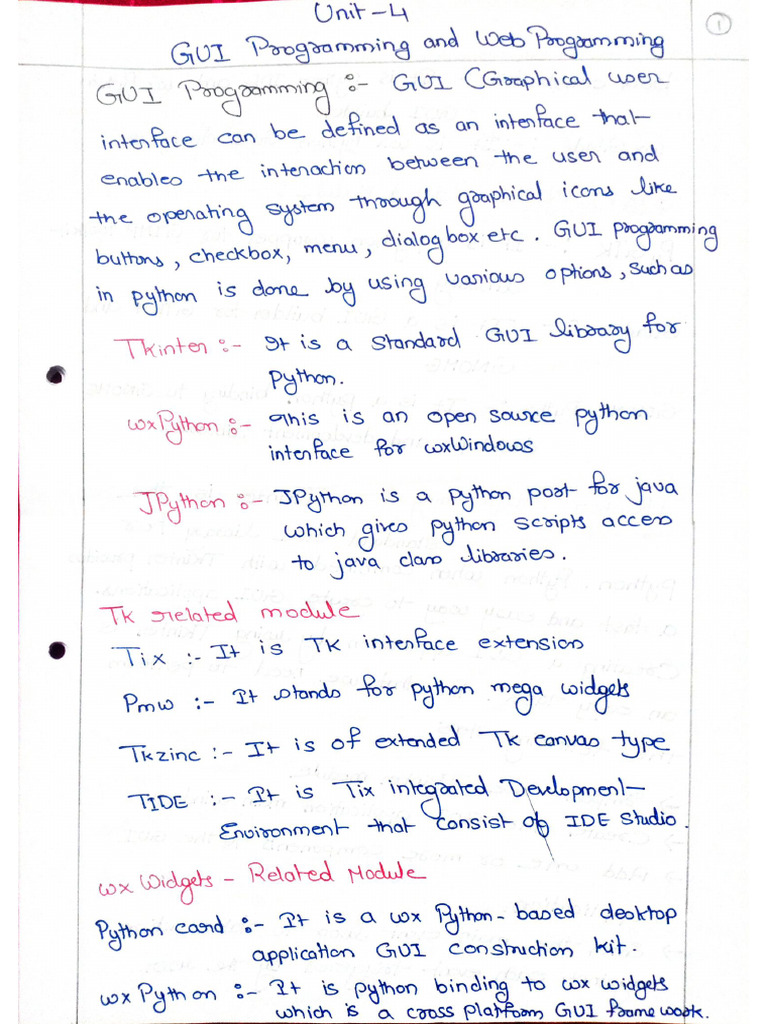 Unit-4
1
GUI Programming and Web Programming
GUI Programming :- GUI (Graphical user
interface can be defined as an interface that
enables the interaction between the user and
the operating system through graphical icons like
buttons, checkbox, menu, dialog box etc. GUI programming
in python is done by using various options, such as
Tkinter :- It is a standard GUI library for
python.
wxPython :- This is an open source python
interface for wxWindows
JPython :- JPython is a python port for java
which gives python scripts access
to java class libraries.
Tk related module
Tix :- It is TK interface extension
Pmw :- It stands for python mega widgets
Tkzinc :- It is of extended Tk canvas type
TIDE :- It is Tix integrated Development
Environment that consist of IDE Studio.
wx Widgets - Related Module
Python card :- It is a wx Python-based desktop
application GUI construction kit.
wx Python :- It is python binding to wx widgets
which is a cross platform GUI framework.